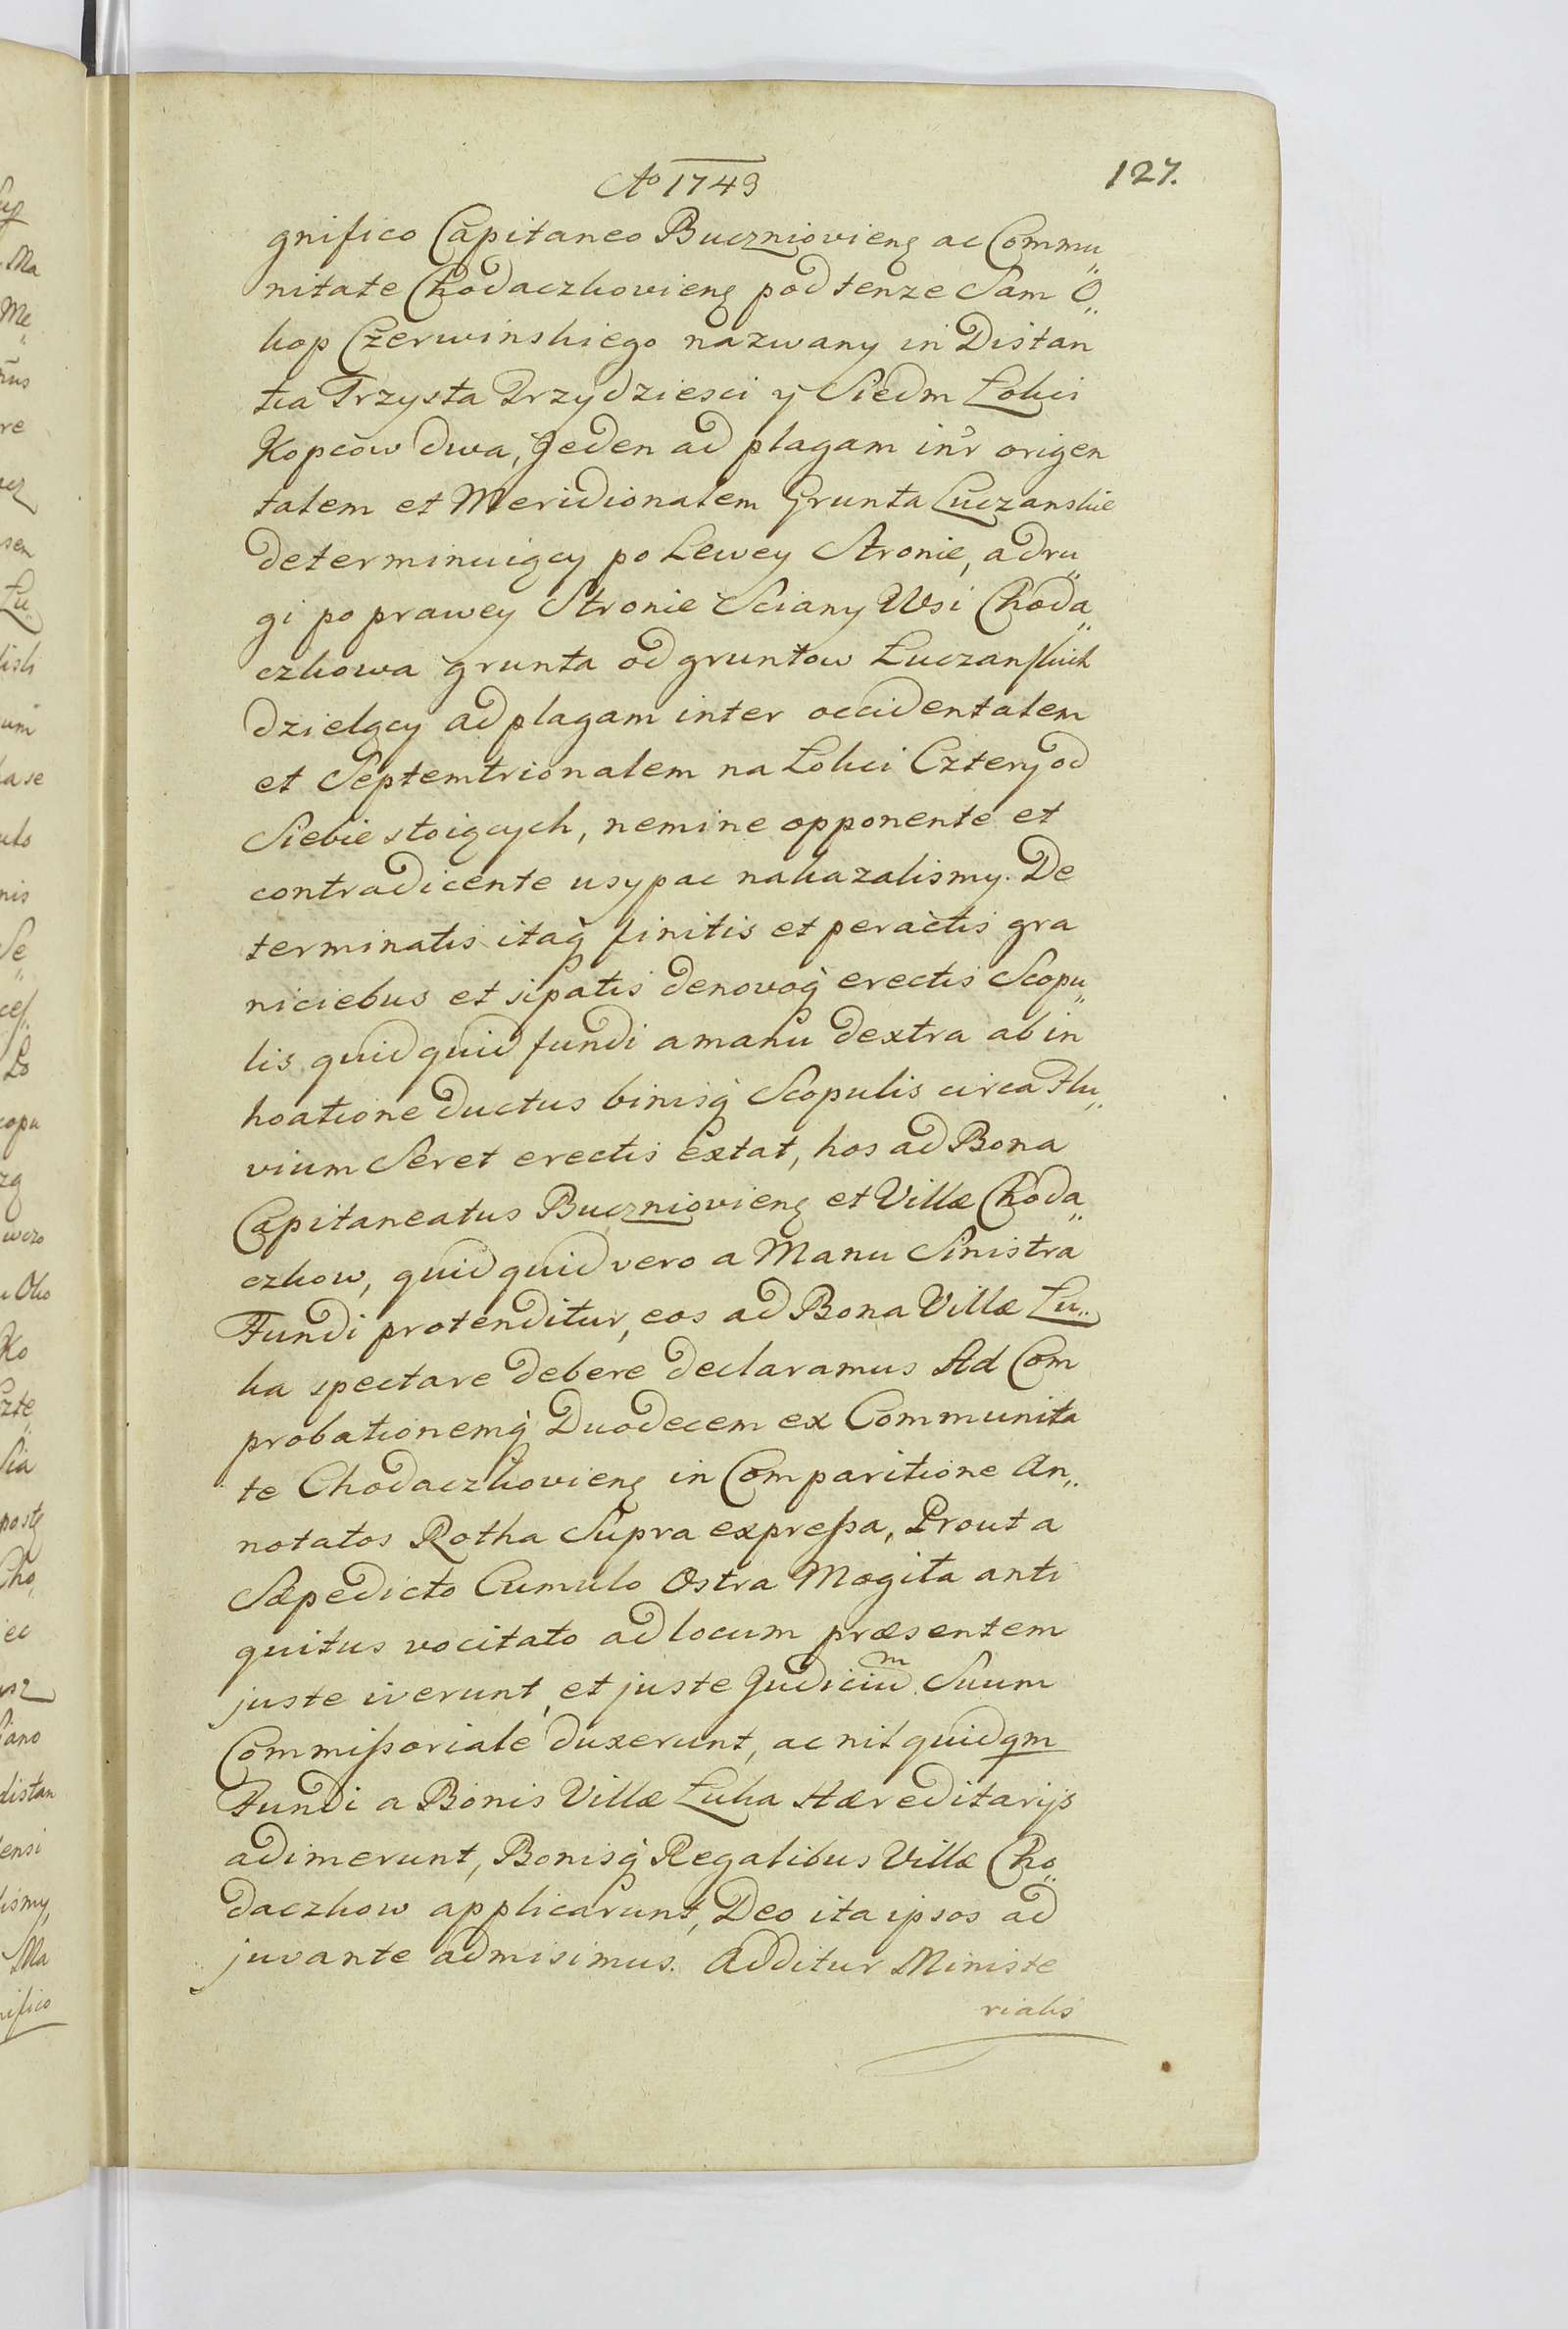 Aº 1743
127.
gnifico Capitaneo Buczniovieng ac Commu„
nitate Chodaczkovieng pod tenze Sam O„
kop Czerwinskiego nazwany in Distan
tia Trzysta Trzydziesci y Siedm Łokci
Kopcow dwa, Jeden ad plagam int'r origen
talem et Meridionalem Grunta Łuczanskie
determinuiący po Lewey Stronie, a dru„
gi po prawey Stronie Sciany Wsi Choda„
czkowa grunta od gruntow Łuczanskich
dzielący ad plagam inter occidentalem
et Septemtrionalem na Łokci Cztery od
Siebie stoiących, nemine opponente et
contradicente usypac nakazalismy. De
terminatis itaq̀ finitis et peractis gra
niciebus et sipatis denovoq̀ erectis Scopu„
lis quidquid fundi a manu dextra ab in
hoatione ductus binisq̀ Scopulis circa Flu„
vium Seret erectis extat, hos ad Bona
Capitaneatus Buczniovieng et Villæ Choda„
czkow, quidquid vero a Manu Sinistra
Fundi protenditur, eos ad Bona Villæ Łu„
ka spectare debere declaramus Ad Com
probationemq̀ Duodecem ex Communita
te Chodaczkovieng in Comparitione An„
notatos Rotha Supra expressa, Prout a
Sæpedicto Cumulo Ostra Mogita anti
quitus vocitato ad locum præsentem
juste iverunt, et juste Judiciūm Suum
Commissoriale duxerunt, ac nil quidqm
Fundi a Bonis Villæ Łuka Hæreditarijs
adimerunt, Bonisq̀ Regalibus Villæ Cho„
daczkow applicarunt, Deo ita ipsos ad
juvante admisimus. Additur Ministe
rialis